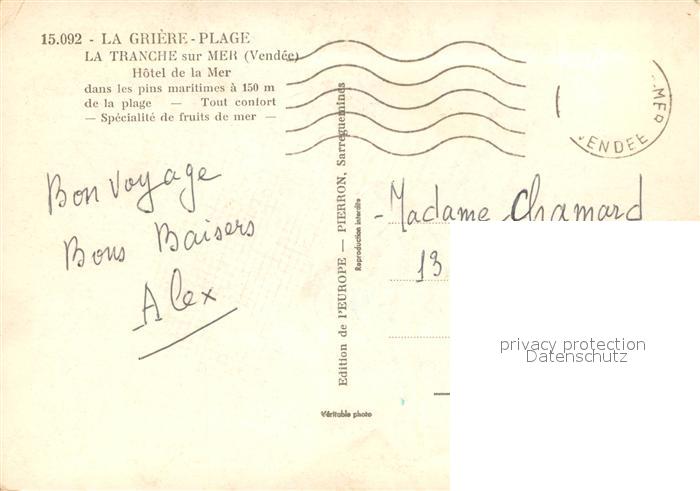 15.092 - LA GRIÈRE-PLAGE
LA TRANCHE sur MER (Vendée)
Hôtel de la Mer
dans les pins maritimes à 150 m
de la plage — Tout confort
— Spécialité de fruits de mer —
Bon Voyage
Bons Baisers
Alex
Edition de l'EUROPE — PIERRON, Sarreguemines
Reproduction interdite
Véritable photo
MER
VENDEE
-Madame Chamard
13
privacy protection
Datenschutz